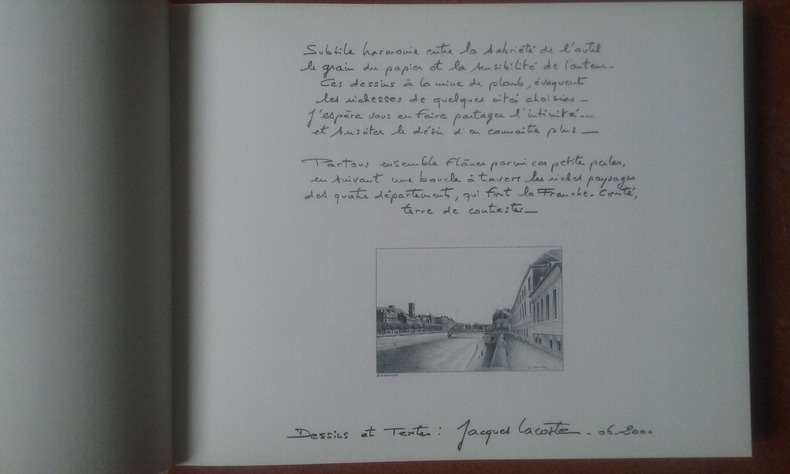 Subtile harmonie entre la sobriété de l'outil
le grain du papier et la sensibilité de l'auteur.
Ces dessins à la mine de plomb, évoquent
les richesses de quelques cités choisies _
J'espère vous en faire partager l'intimité...
et susciter le désir d'en connaître plus _
Partons ensemble flâner parmi ces petites perles,
en suivant une boucle à travers les riches paysages
des quatre départements, qui font la Franche-Comté,
terre de contrastes _
Dessins et Textes : Jacques Lacoste - 06-2000